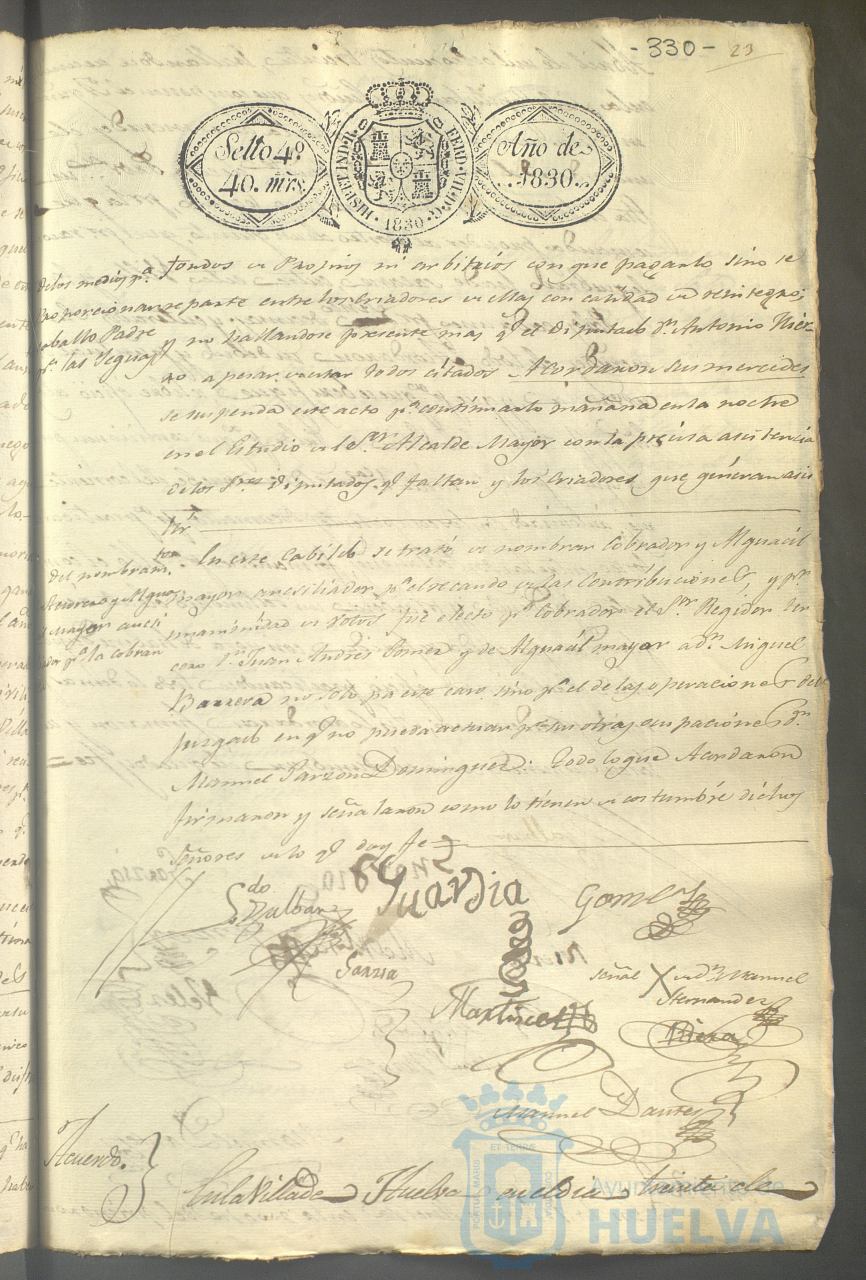 - 330 - 23
Sello 4º
40. mrs.
HISP. ET IND. R.
FERD. VII. D. G.
1830
Año de
1830.
De los medios pª
proporcionar
caballo Padre
pª las Yeguas
fondos de Propios ni arbitrios con que pagarlo sino se
reparte entre los criadores de ellas con calidad de reintegro;
y no hallandose presente mas qe el Diputado Dn. Antonio
a pesar de estar todos citados Acordaron sus mercedes
se suspenda este acto pª continuarlo mañana en la noche
en el Estudio de el Sor. Alcalde Mayor con la precisa asistencia
de los Sres Diputados qe faltan y los criadores que quieran asis
tir
del nombramto.
y Alguacil
Mayor auxi
dor pª la cobran
En este Cabildo se trató de nombrar Cobrador y Alguacil
mayor auxiliador pª el recaudo de las Contribuciones, y pr.
unanimidad de votos fue electo pr. Cobrador el Sor. Regidor ter
cero Dn. Juan Andres Gomez y de Alguacil mayor a Dn. Miguel
Barrera no solo pª este caso, sino pª el de las operaciones del
Juzgado en qe no pueda actuar pr. sus otras ocupaciones Dn.
Manuel Garzon Dominguez: Todo lo que Acordaron
firmaron y señalaron como lo tienen de costumbre dichos
Señores de lo qe doy fe
Guardia
Gomez
Garzia
señal X de Dn. Manuel
Hernandez
Martinez
Manuel
Acuerdo.
En la Villa de Huelva en el dia treinta de
PORTUS MARIS ET TERRAE CUSTODIA
Ayuntamiento de
HUELVA